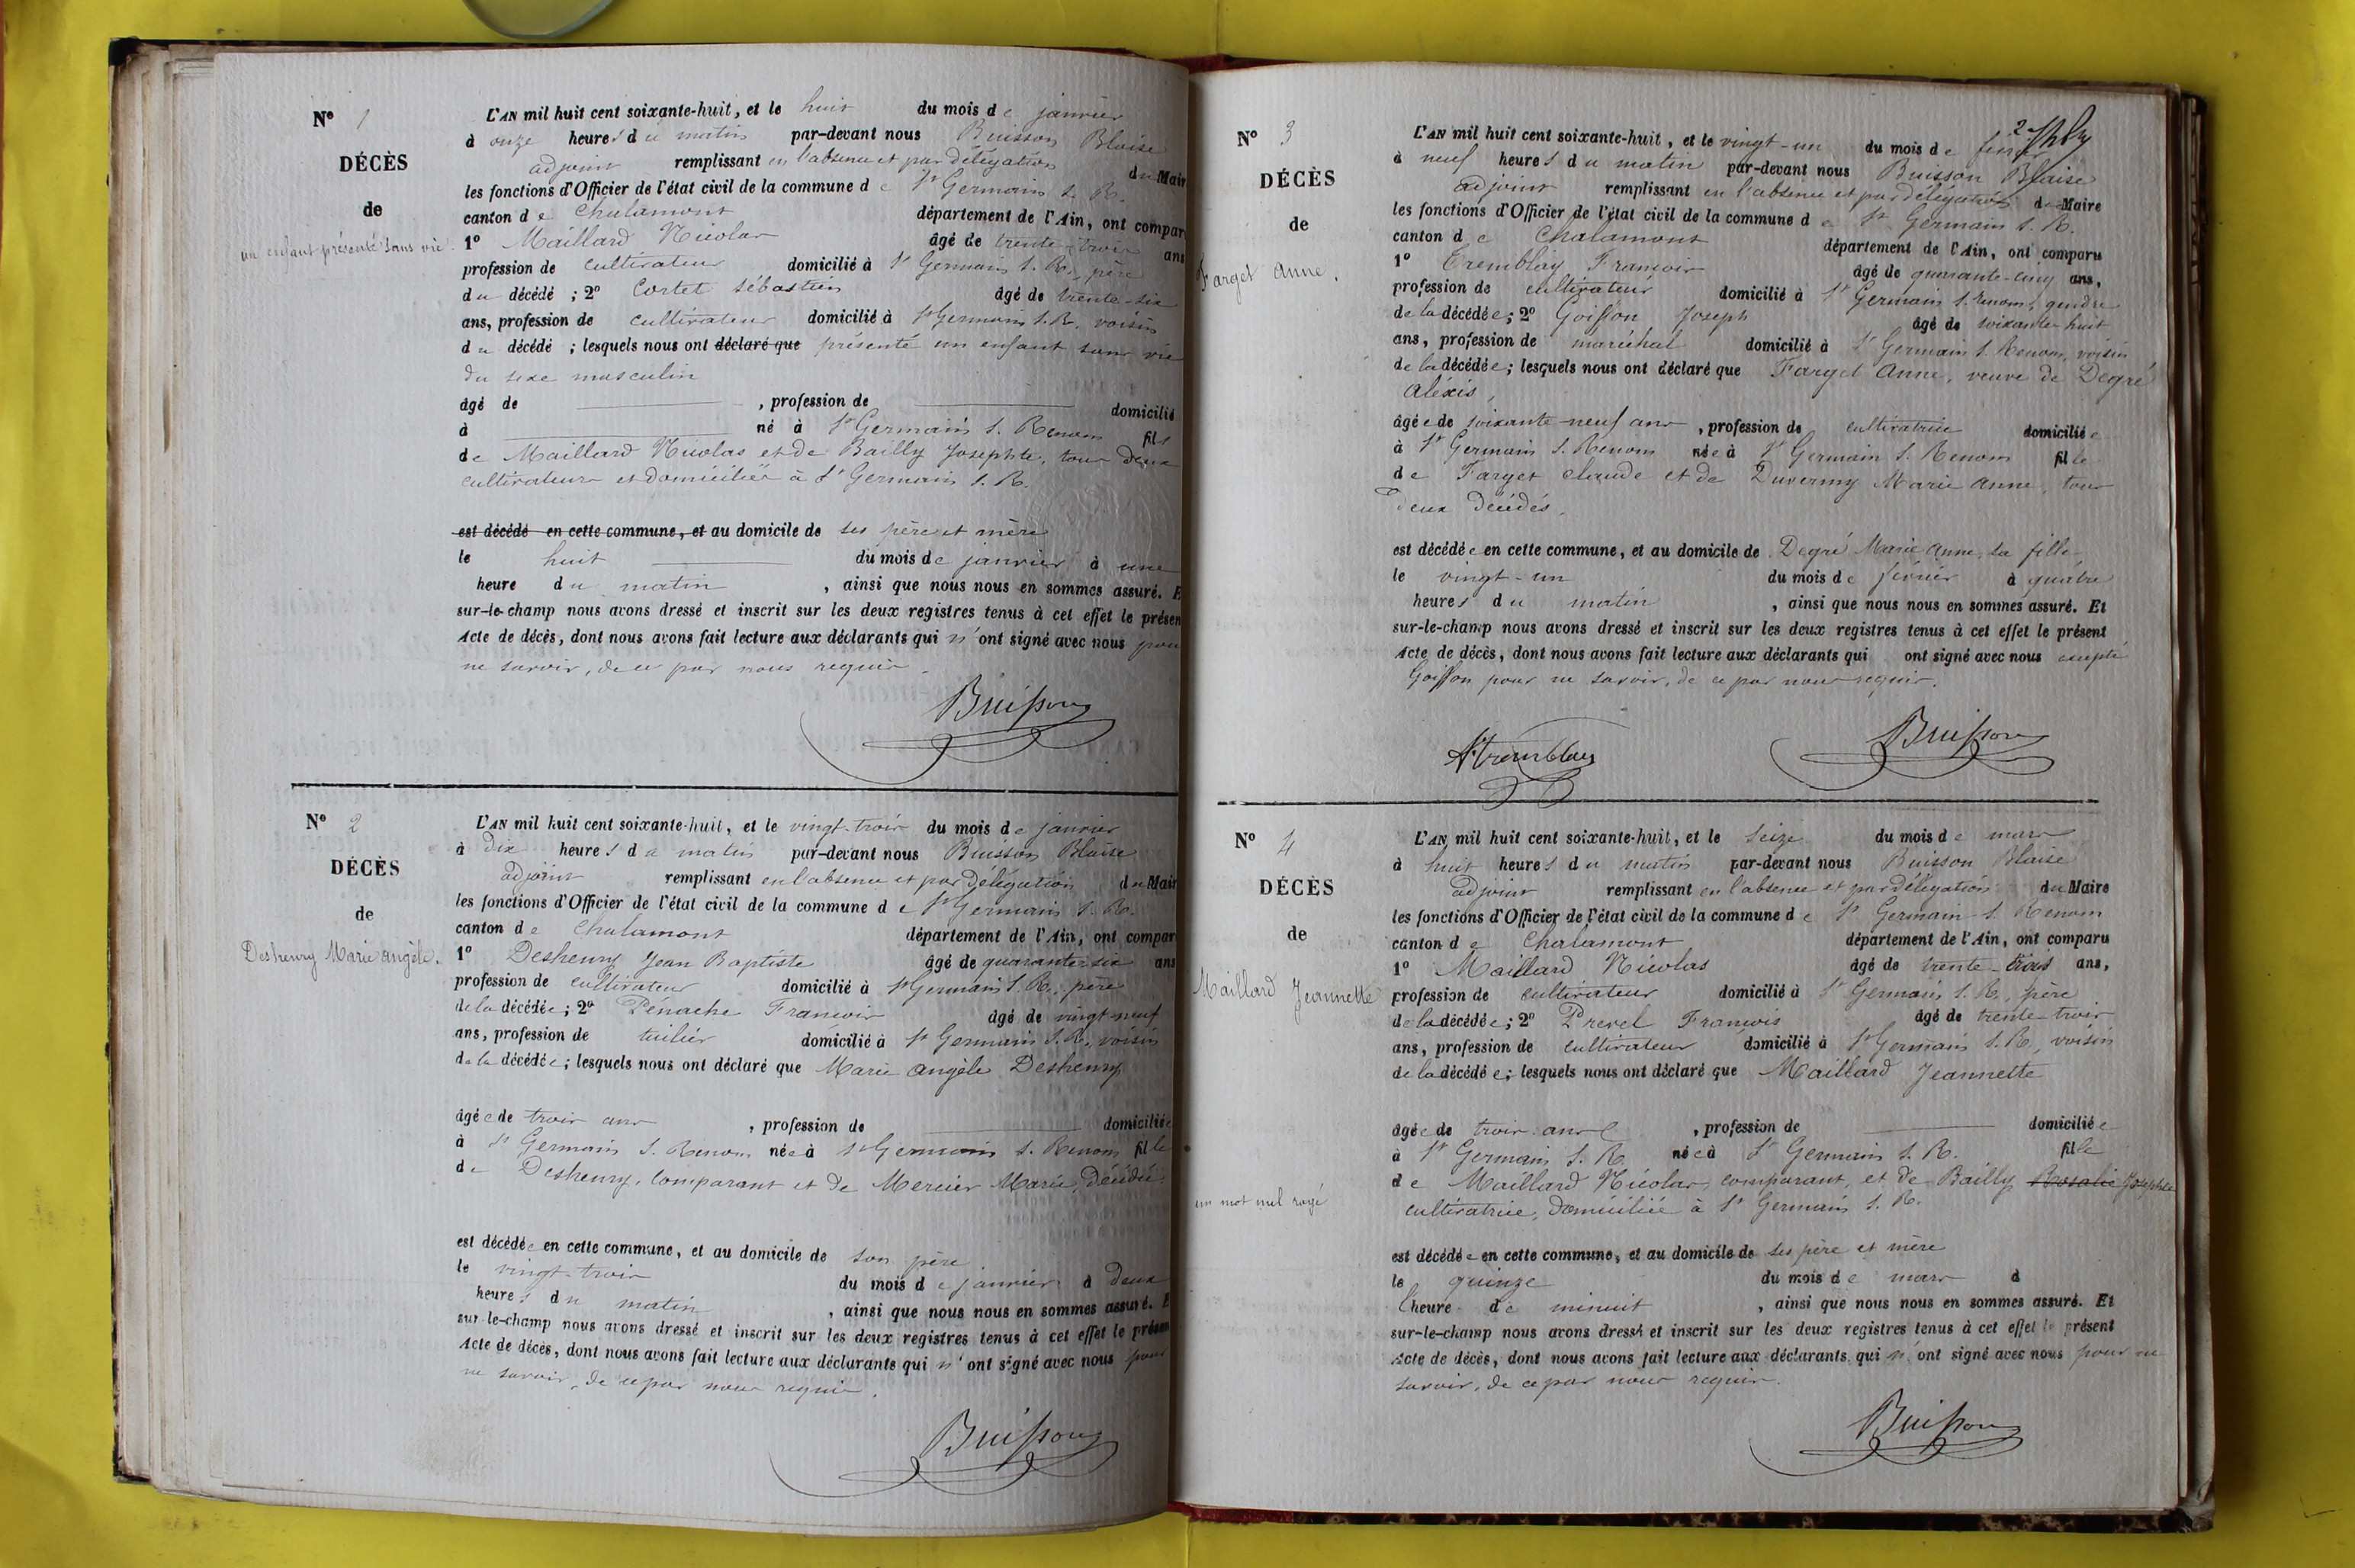 N° 1
DÉCÈS
de
un enfant présenté sans vie
L'AN mil huit cent soixante-huit, et le huit du mois de janvier
à onze heures du matin par-devant nous Buisson Blaise
adjoint remplissant en l'absence et par délégation du Mair
les fonctions d'Officier de l'état civil de la commune de St Germain s. R.
canton de Chalamont département de l'Ain, ont compar
1° Maillard Nicolas âgé de trente-trois ans
profession de cultivateur domicilié à St Germain s. R., père
du décédé ; 2° Cortet Sébastien âgé de trente-six
ans, profession de cultivateur domicilié à St Germain s. R. voisin
du décédé ; lesquels nous ont déclaré que présenté un enfant sans vie
du sexe masculin
âgé de , profession de domicilié
à né à St Germain s. Renom fils
de Maillard Nicolas et de Bailly Josephte, tous deux
cultivateurs et domiciliés à St Germain s. R.
est décédé en cette commune, et au domicile de ses père et mère
le huit du mois de janvier à une
heure du matin , ainsi que nous nous en sommes assuré. E
sur-le-champ nous avons dressé et inscrit sur les deux registres tenus à cet effet le présen
Acte de décès, dont nous avons fait lecture aux déclarants qui n'ont signé avec nous pour
ne savoir, de ce par nous requis.
Buisson
N° 2
DÉCÈS
de
Deshenry Marie angèle.
L'AN mil huit cent soixante-huit, et le vingt-trois du mois de janvier
à dix heures du matin par-devant nous Buisson Blaise
adjoint remplissant en l'absence et par délégation du Mair
les fonctions d'Officier de l'état civil de la commune de St Germain s. R.
canton de Chalamont département de l'Ain, ont compar
1° Deshenry Jean Baptiste âgé de quarante-six ans
profession de cultivateur domicilié à St Germain s. R., père
de la décédée ; 2° Pénache Francois âgé de vingt-neuf
ans, profession de tuilier domicilié à St Germain s. R., voisin
de la décédée ; lesquels nous ont déclaré que Marie angèle Deshenry
âgée de trois ans , profession de domiciliée
à St Germain s. Renom née à St Germain s. Renom fille
de Deshenry, comparant et de Mercier Marie, décédée
est décédée en cette commune, et au domicile de son père
le vingt-trois du mois de janvier à deux
heures du matin , ainsi que nous nous en sommes assuré. E
sur-le-champ nous avons dressé et inscrit sur les deux registres tenus à cet effet le présen
Acte de décès, dont nous avons fait lecture aux déclarants qui n'ont signé avec nous pour
ne savoir, de ce par nous requis.
Buisson
N° 3
DÉCÈS
de
Farget Anne.
L'AN mil huit cent soixante-huit, et le vingt-un du mois de février
à neuf heures du matin par-devant nous Buisson Blaise
adjoint remplissant en l'absence et par délégation du Maire
les fonctions d'Officier de l'état civil de la commune de St Germain s. R.
canton de Chalamont département de l'Ain, ont comparu
1° Tremblay Francois âgé de quarante-cinq ans,
profession de cultivateur domicilié à St Germain s. Renom, gendre
de la décédée ; 2° Goiffon Joseph âgé de soixante-huit
ans, profession de maréchal domicilié à St Germain s. Renom, voisin
de la décédée ; lesquels nous ont déclaré que Farget Anne, veuve de Degré
Aléxis,
âgée de soixante-neuf ans , profession de cultivatrice domiciliée
à St Germain s. Renom née à St Germain s. Renom fille
de Farget claude et de Duverny Marie Anne, tous
deux décédés.
est décédée en cette commune, et au domicile de Degré Marie Anne, sa fille
le vingt-un du mois de février à quatre
heures du matin , ainsi que nous nous en sommes assuré. Et
sur-le-champ nous avons dressé et inscrit sur les deux registres tenus à cet effet le présent
Acte de décès, dont nous avons fait lecture aux déclarants qui ont signé avec nous excepté
Goiffon pour ne savoir, de ce par nous requis.
Tremblay Buisson
N° 4
DÉCÈS
de
Maillard Jeannette
un mot nul rayé
L'AN mil huit cent soixante-huit, et le seize du mois de mars
à huit heures du matin par-devant nous Buisson Blaise
adjoint remplissant en l'absence et par délégation du Maire
les fonctions d'Officier de l'état civil de la commune de St Germain s. Renom
canton de Chalamont département de l'Ain, ont comparu
1° Maillard Nicolas âgé de trente-trois ans,
profession de cultivateur domicilié à St Germain s. R., père
de la décédée ; 2° Prevel Francois âgé de trente-trois
ans, profession de cultivateur domicilié à St Germain s. R., voisin
de la décédée ; lesquels nous ont déclaré que Maillard Jeannette
âgée de trois ans , profession de domiciliée
à St Germain s. R. née à St Germain s. R. fille
de Maillard Nicolas, comparant, et de Bailly Rosalie Josephte
cultivatrice, domiciliée à St Germain s. R.
est décédée en cette commune, et au domicile de ses père et mère
le quinze du mois de mars à
l'heure de minuit , ainsi que nous nous en sommes assuré. Et
sur-le-champ nous avons dressé et inscrit sur les deux registres tenus à cet effet le présent
Acte de décès, dont nous avons fait lecture aux déclarants qui n'ont signé avec nous pour ne
savoir, de ce par nous requis.
Buisson